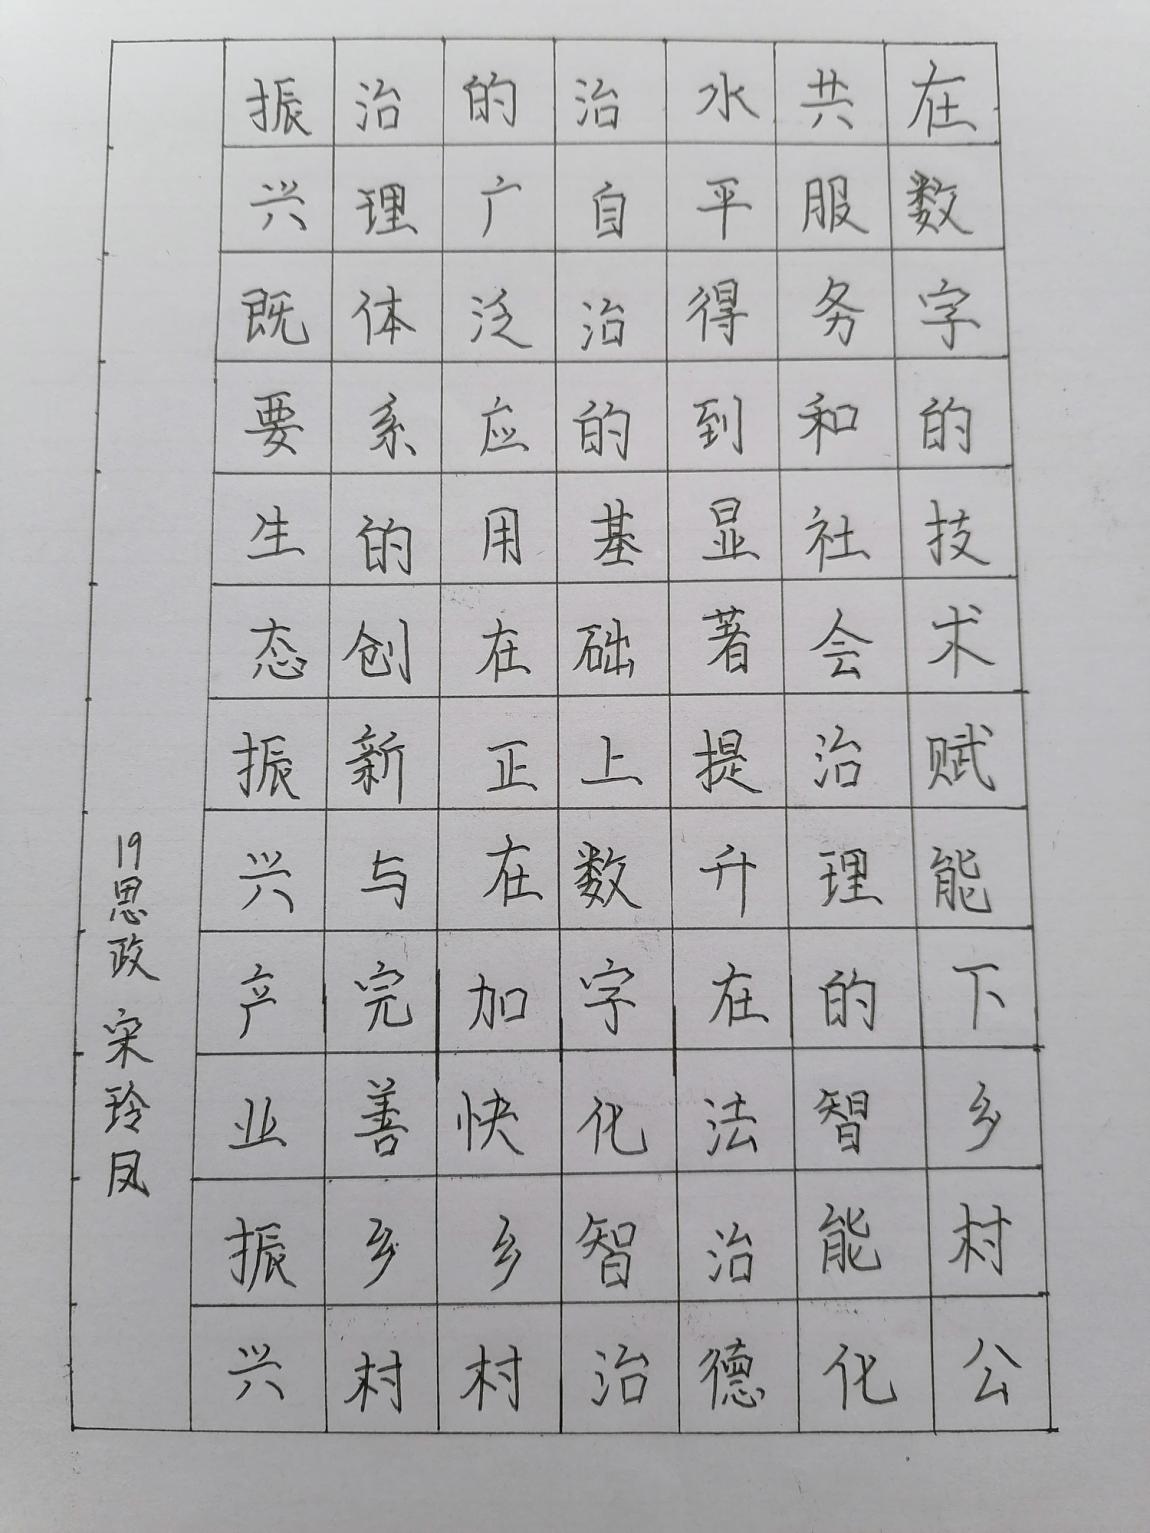 在数字的技术赋能下乡村公
共服务和社会治理的智能化
水平得到显著提升在法治德
治自治的基础上数字化智治
的广泛应用在正在加快乡村
治理体系的创新与完善乡村
振兴既要生态振兴产业振兴
19思政 宋玲凤